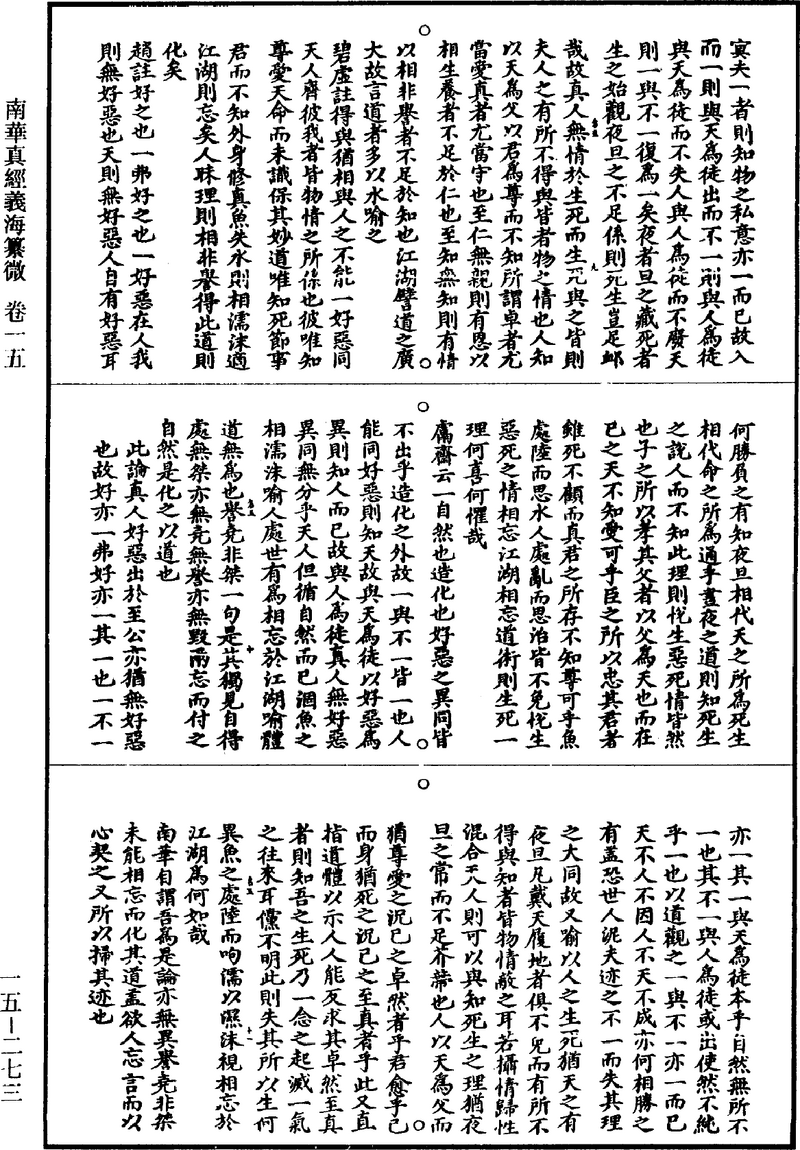 南華真經義海纂微 卷一五
冥夫一者則知物之私意亦一而已故入
而一則與天爲徒出而不一則與人爲徒
與天爲徒而不失人與人爲徒而不廢天
則一與不一復爲一矣夜者旦之藏死者
生之始觀夜旦之不足係則死生豈足卹
哉故真人無情於生死而生死與之皆則
夫人之有所不得與皆者物之情也人知
以天爲父以君爲尊而不知所謂卓者尤
當愛真者尤當守也至仁無親則有恩以
相生養者不足於仁也至知無知則有情
以相非譽者不足於知也江湖譬道之廣
大故言道者多以水喻之
碧虛註得與猶相與人之不能一好惡同
天人齊彼我者皆物情之所係也彼唯知
尊愛天命而未識保其妙道唯知死節事
君而不知外身修真魚失水則相濡沫適
江湖則忘矣人昧理則相非譽得此道則
化矣
趙註好之也一弗好之也一好惡在人我
則無好惡也天則無好惡人自有好惡耳
何勝負之有知夜旦相代天之所爲死生
相代命之所爲通乎晝夜之道則知死生
之說人而不知此理則悅生惡死情皆然
也子之所以孝其父者以父爲天也而在
已之天不知愛可乎臣之所以忠其君者
雖死不顧而真君之所存不知尊可乎魚
處陸而思水人處亂而思治皆不免悅生
惡死之情相忘江湖相忘道術則生死一
理何喜何懼哉
鬳齋云一自然也造化也好惡之異同皆
不出乎造化之外故一與不一皆一也人
能同好惡則知天故與天爲徒以好惡爲
異則知人而已故與人爲徒真人無好惡
異同無分乎天人但循自然而已涸魚之
相濡沫喻人處世有爲相忘於江湖喻體
道無爲也譽堯非桀一句是其獨見自得
處無桀亦無堯無譽亦無毀兩忘而付之
自然是化之以道也
此論真人好惡出於至公亦猶無好惡
也故好亦一弗好亦一其一也一不一
亦一其一與天爲徒本乎自然無所不
一也其不一與人爲徒或出使然不純
乎一也以道觀之一與不一亦一而已
天不人不因人不天不成亦何相勝之
有蓋恐世人泥夫迹之不一而失其理
之大同故又喻以人之生死猶天之有
夜旦凡戴天履地者俱不免而有所不
得與知者皆物情蔽之耳若攝情歸性
混合天人則可以與知死生之理猶夜
旦之常而不足芥蔕也人以天爲父而
猶尊愛之況已之卓然者乎君愈乎己
而身猶死之況己之至真者乎此又直
指道體以示人人能反求其卓然至真
者則知吾之生死乃一念之起滅一氣
之往來耳儻不明此則失其所以生何
異魚之處陸而呴濡以濕沫視相忘於
江湖爲何如哉
南華自謂吾爲是論亦無異譽堯非桀
未能相忘而化其道蓋欲人忘言而以
心契之又所以掃其迹也
一五－二七三